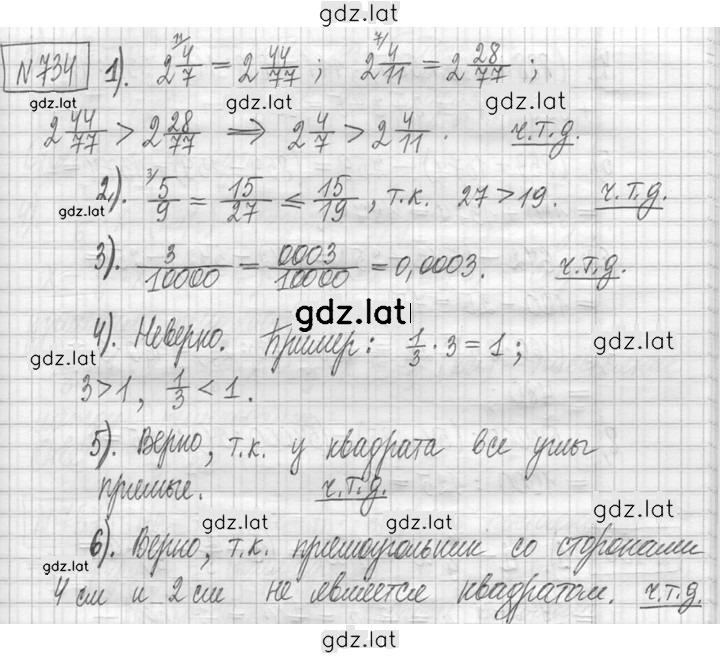 gdz.lat
N 734 1). 2 ¹¹⁄4/7 = 2 44/77 ; 2 ⁷⁄4/11 = 2 28/77 ;
gdz.lat gdz.lat gdz.lat
2 44/77 > 2 28/77 ⟹ 2 4/7 > 2 4/11 . ч.т.д.
2). ³⁄5/9 = 15/27 ≤ 15/19 , т.к. 27 > 19. ч.т.д.
gdz.lat
3). 3/10000 = 0003/10000 = 0,0003. ч.т.д.
gdz.lat
4). Неверно. Пример: 1/3 · 3 = 1 ;
gdz.lat gdz.lat
3 > 1 , 1/3 < 1 .
5). Верно, т.к. у квадрата все углы
прямые. ч.т.д.
gdz.lat gdz.lat
6). Верно, т.к. прямоугольник со сторонами
gdz.lat
4 см и 2 см не является квадратом. ч.т.д.
gdz.lat